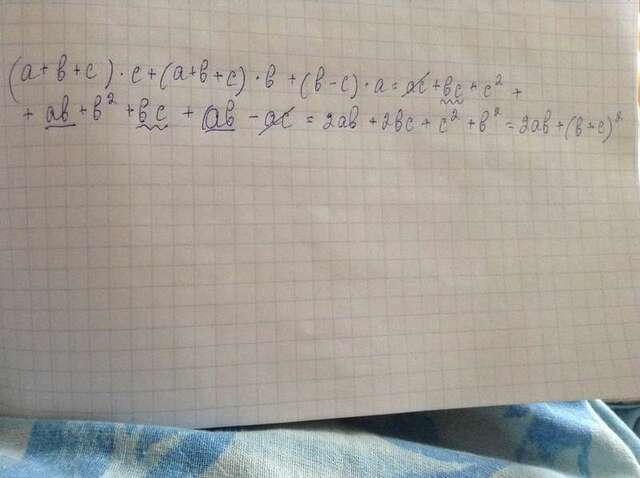 (a+b+c)·c+(a+b+c)·b+(b-c)·a=ac+bc+c²+
+ab+b²+bc+ab-ac=2ab+2bc+c²+b²=2ab+(b+c)²